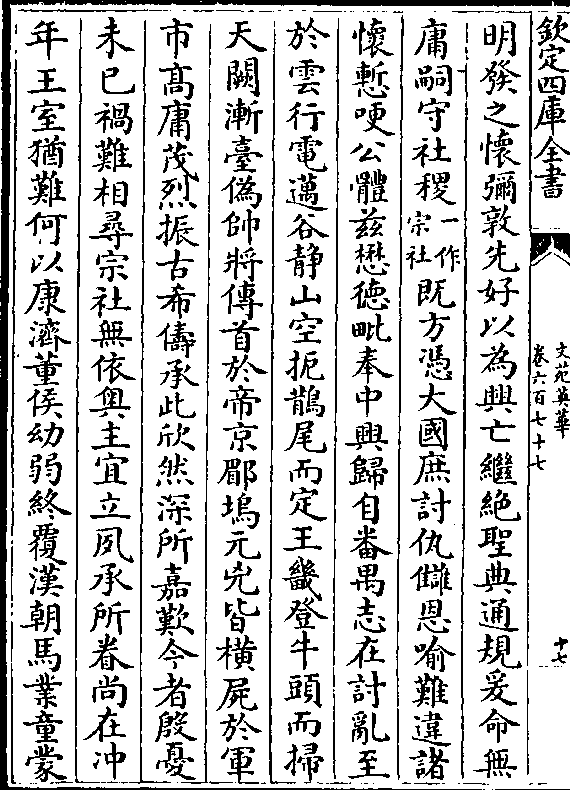 欽定四庫全書
文苑英華
卷六百七十七
十七
明發之懷彌敦先好以為興亡繼絶聖典通規爰命無
庸嗣守社稷一作宗社既方憑大國庶討仇讎恩喻難違諸
懷慙哽公體兹懋徳毗奉中興歸自番禺志在討亂至
於雲行電邁谷静山空扼鵲尾而定王畿登牛頭而掃
天闕漸臺偽帥將傳首於帝京郿塢元兇皆橫屍於軍
市髙庸茂烈振古希儔承此欣然深所嘉歎今者殷憂
未已禍難相尋宗社無依奥主宜立夙承所眷尚在冲
年王室猶難何以康濟董侯幼弱終覆漢朝馬業童蒙